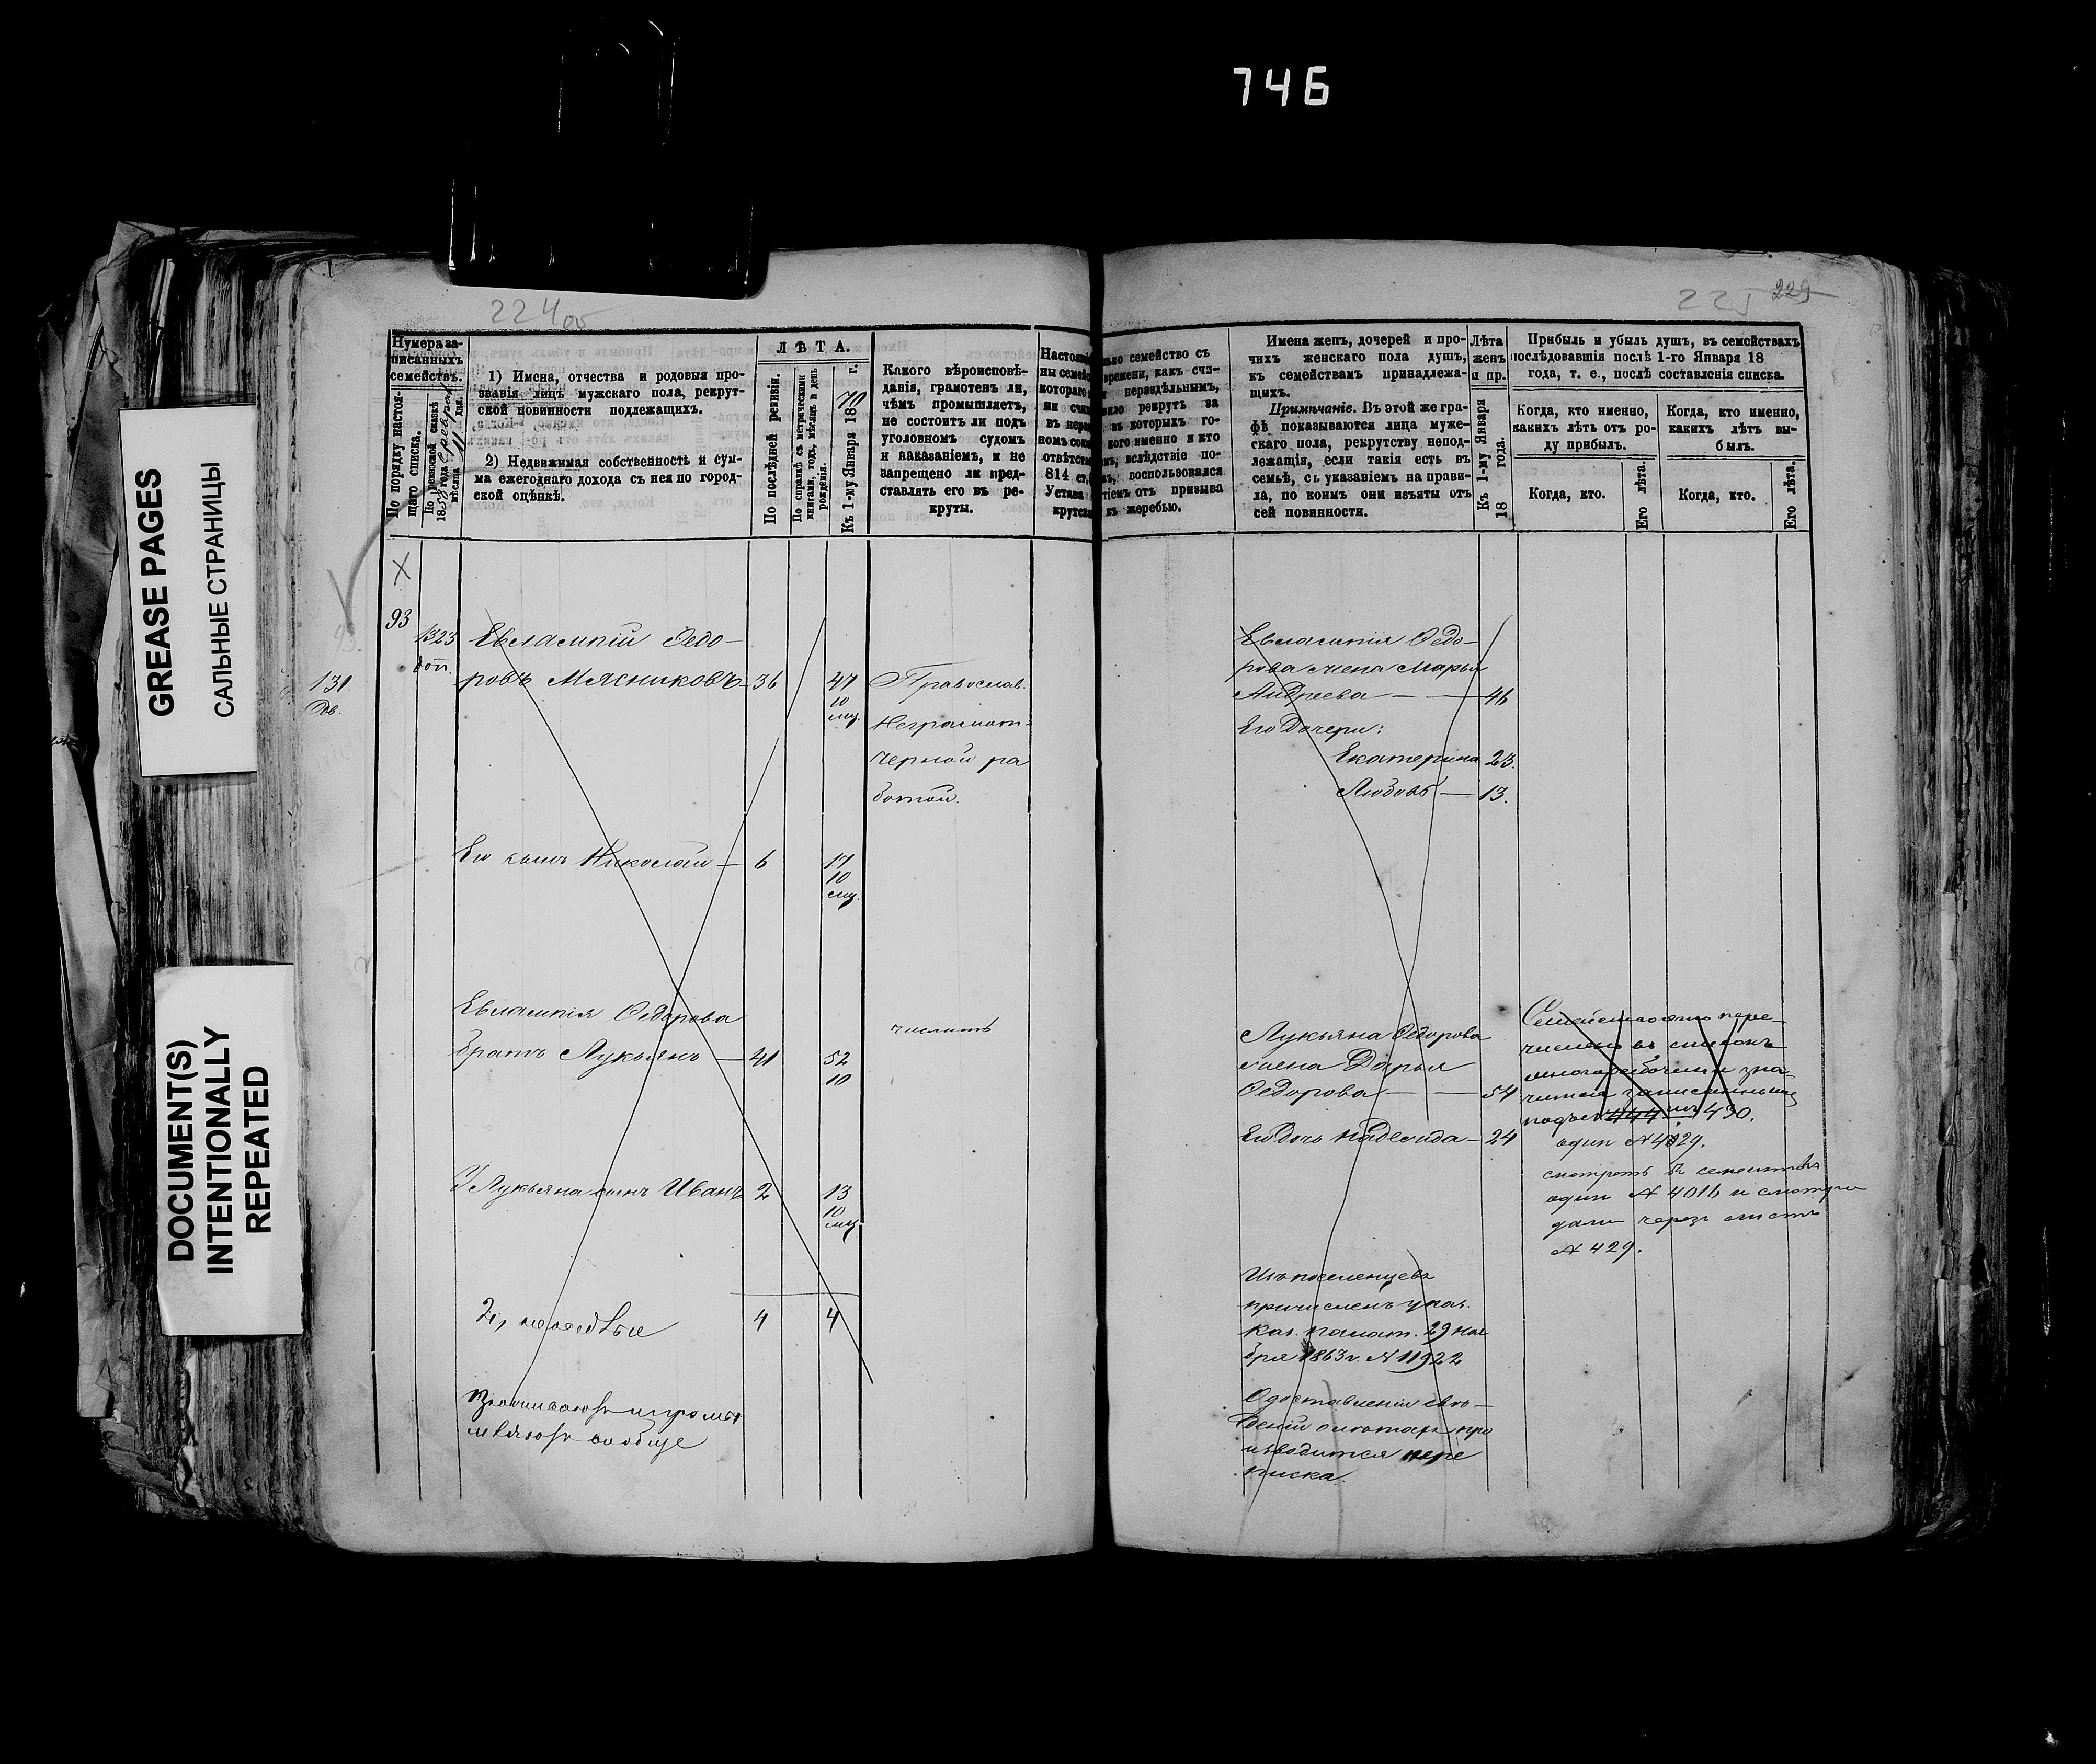 746
GREASE PAGES
САЛЬНЫЕ СТРАНИЦЫ
DOCUMENT(S)
INTENTIONALLY
REPEATED
224 об
Нумера за-
писанныхъ
семействъ.
По порядку настоя-
щаго списка.
По ревизской сказкѣ
1858 года февраля
мѣсяца 11 дня.
1) Имена, отчества и родовыя про-
званія лицъ мужскаго пола, рекрут-
ской повинности подлежащихъ.
2) Недвижимая собственность и сум-
ма ежегоднаго дохода съ нея по город-
ской оцѣнкѣ.
ЛѢТА.
По послѣдней ревизіи.
По справкѣ съ метрическими
книгами, годъ, мѣсяцъ и день
рожденія.
Къ 1-му Января 1870 г.
Какого вѣроисповѣ-
данія, грамотенъ ли,
чѣмъ промышляетъ,
не состоитъ ли подъ
уголовнымъ судомъ
и наказаніемъ, и не
запрещено ли пред-
ставлять его въ ре-
круты.
Настоя
ны семей
котораго
ли счи
въ нера
номъ сос
отвѣтств
814 ст.
Устава
крутск
X
93
1323
доп.
131
Евлампій Федо-
ровъ Мясниковъ 36 47
10
мц.
Православ.
Неграмот.
черной ра
ботой.
Его сынъ Николай — 6 17
10
мц.
Евлампія Федорова
братъ Лукьянъ — 41 52
10
числитъ
У Лукьяна сынъ Иванъ 2 13
10
мц
4 4
вообще
225 229
лько семейство съ
времени, какъ счи-
нераздѣльнымъ,
вило рекрутъ за
въ которыхъ го-
кого именно и кто
нъ, вслѣдствіе по-
ъ, воспользовался
тіемъ отъ призыва
къ жеребью.
Имена женъ, дочерей и про-
чихъ женскаго пола душъ,
къ семействамъ принадлежа-
щихъ.
Примѣчаніе. Въ этой же гра-
фѣ показываются лица муже-
скаго пола, рекрутству непод-
лежащія, если такія есть въ
семьѣ, съ указаніемъ на прави-
ла, по коимъ они изъяты отъ
сей повинности.
Лѣта
женъ
и пр.
Къ 1-му Января
18 года.
Прибыль и убыль душъ, въ семействахъ
послѣдовавшія послѣ 1-го Января 18
года, т. е., послѣ составленія списка.
Когда, кто именно,
какихъ лѣтъ отъ ро-
ду прибылъ.
Когда, кто именно,
какихъ лѣтъ вы-
былъ.
Когда, кто.
Его лѣта.
Когда, кто.
Его лѣта.
Евлампія Федо-
рова жена Марья
Андреева — 46
Его дочери:
Екатерина 23.
Любовь — 13.
Лукьяна Федорова
жена Дарья
Федорова — 54
Его дочь Надежда — 24
Семейство это пере-
числено въ списокъ
430.
один № 4029.
смотреть в семейства
один № 4016 и смотри
дали черезъ листъ
№ 429.
Изъ поселенцевъ
причисленъ указ.
каз. палат. 29 ноя
бря 1863 г. № 11922
О доставленіи свѣ-
деній о летахъ про
изводится пере
писка.